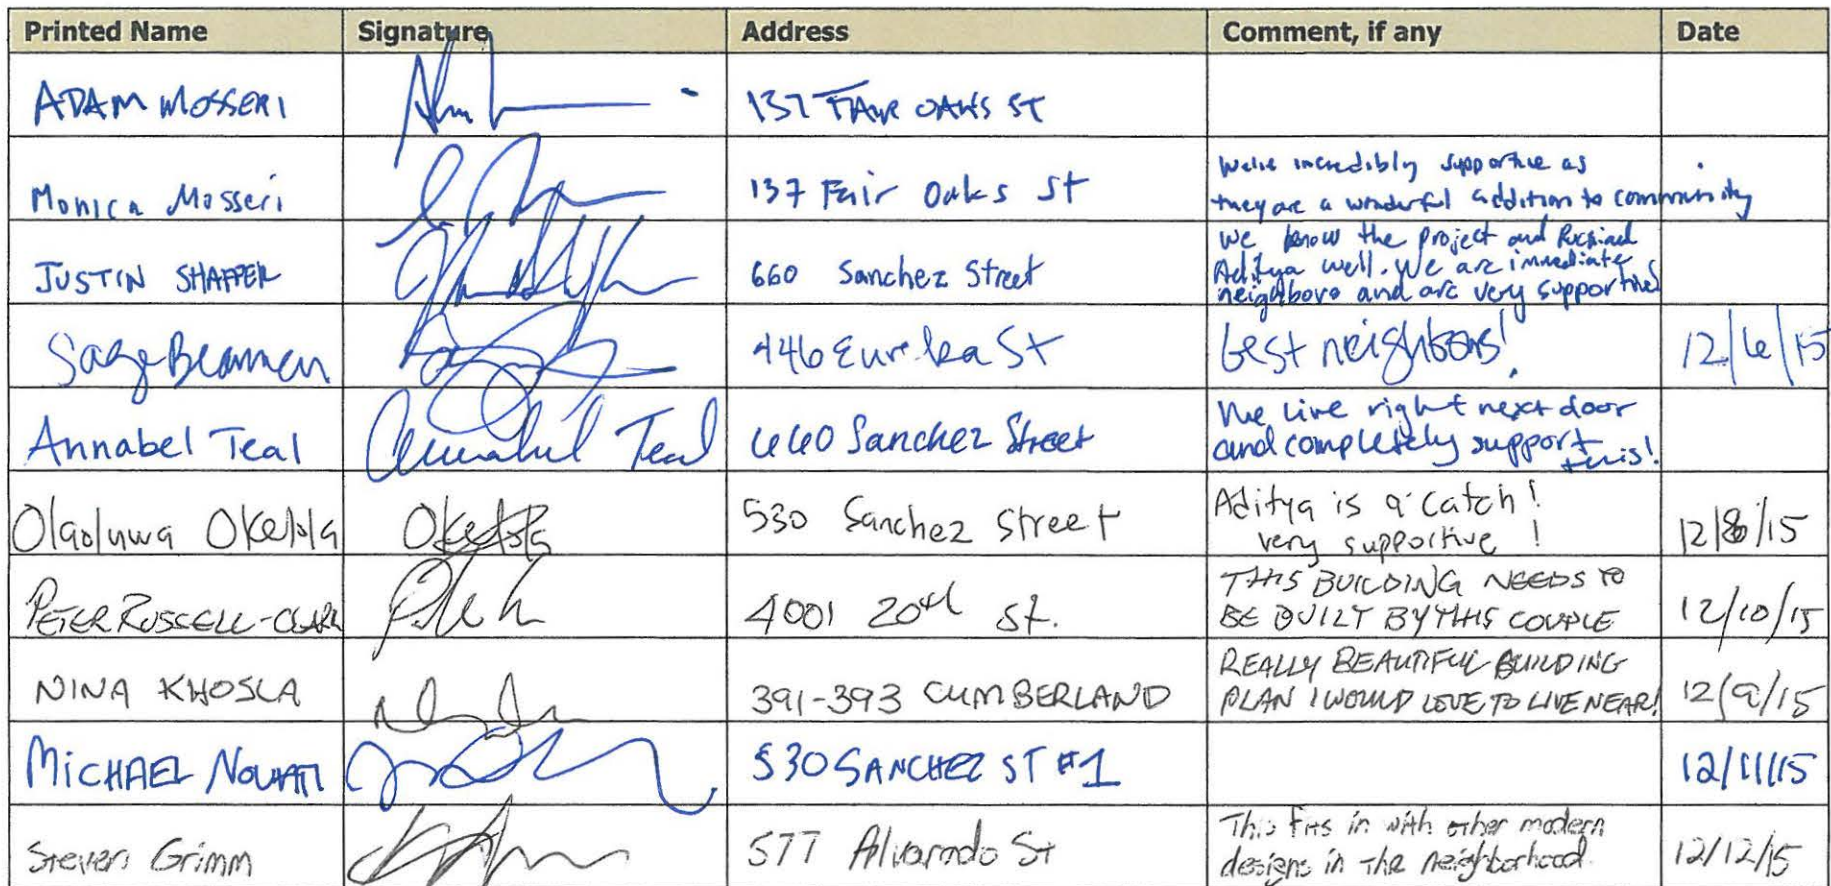 Printed Name Signature Address Comment, if any Date
ADAM MOSSERI 137 FAIR OAKS ST
Monica Mosseri 137 Fair Oaks St We're incredibly supportive as
they are a wonderful addition to community
JUSTIN SHAFFER 660 Sanchez Street We know the project and
Aditya well. We are immediate
neighbors and are very supportive
Sage 446 Eureka St best neighbors! 12/6/15
Annabel Teal Annabel Teal 660 Sanchez Street We live right next door
and completely support
this!
Olaoluwa Okelola 530 Sanchez Street Aditya is a catch!
very supportive! 12/8/15
PETER RUSSELL-CLARK 4001 20th St. THIS BUILDING NEEDS TO
BE BUILT BY THIS COUPLE 12/10/15
NINA KHOSLA 391-393 CUMBERLAND REALLY BEAUTIFUL BUILDING
PLAN I WOULD LOVE TO LIVE NEAR! 12/9/15
MICHAEL 530 SANCHEZ ST #1 12/11/15
Steven Grimm 577 Alvarado St This fits in with other modern
designs in the neighborhood. 12/12/15